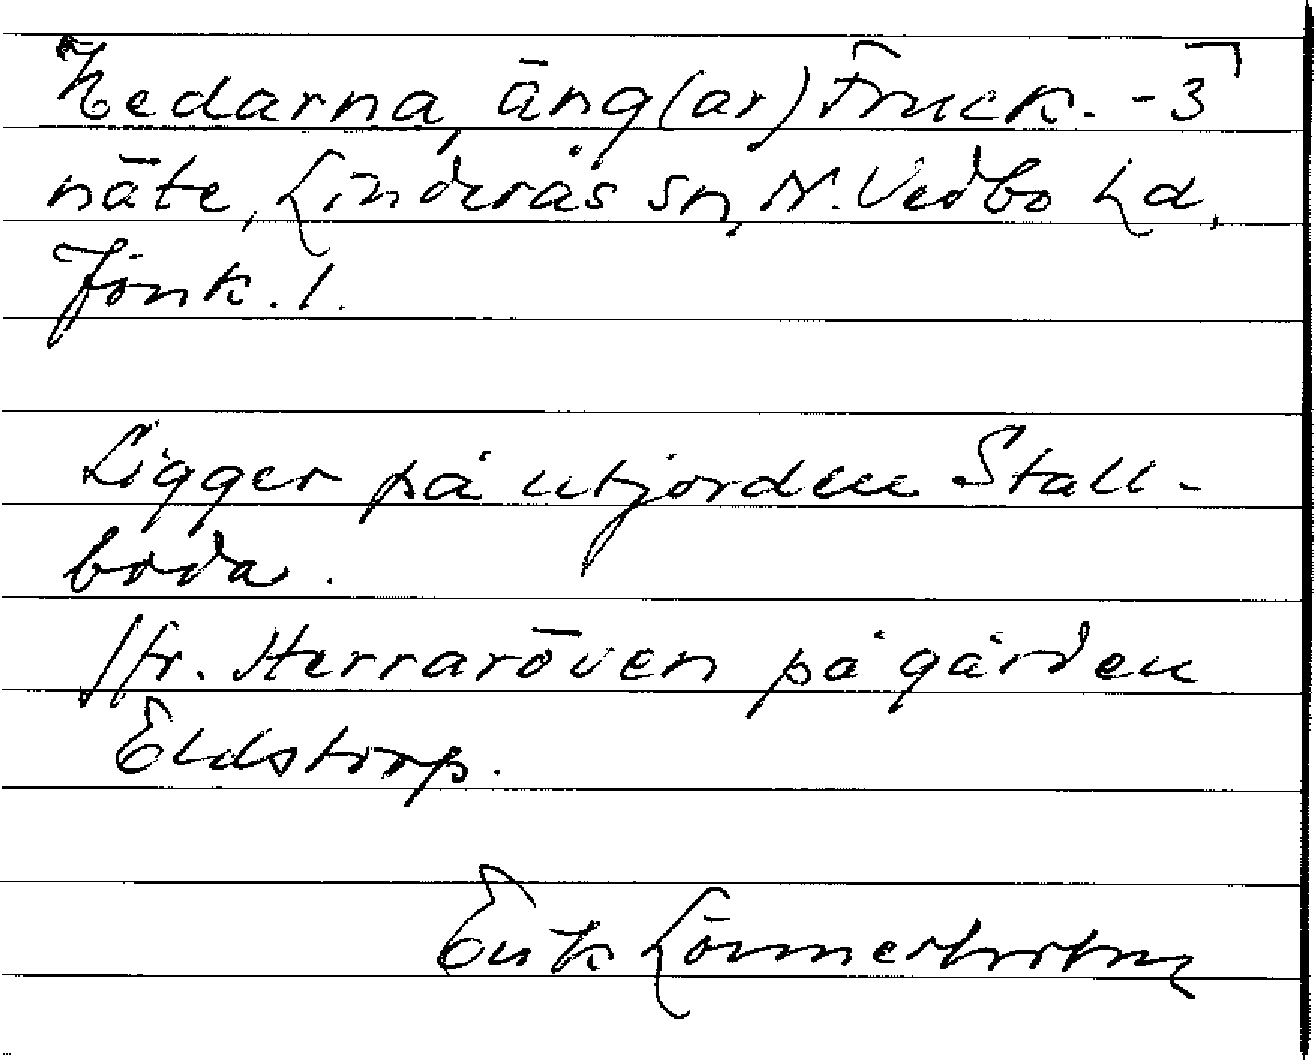 Hedarna, äng(ar) Fruck.-3
näte, Linderås sn, N. Vedbo hd,
Jönk. l.
Ligger på utjorden Stall-
boda.
Jfr. Herraröven på gården
Eldstorp.
Erik Lönnerholm